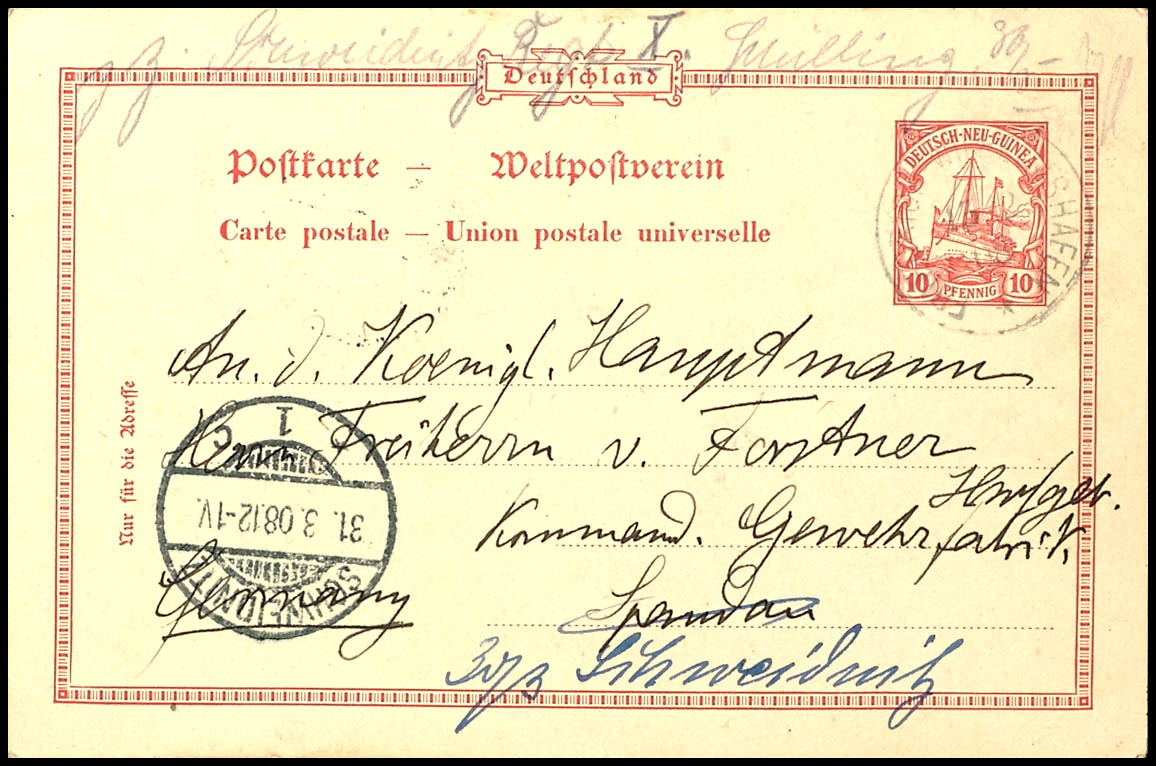 Schweidnitz X. Schilling
Deutschland
DEUTSCH-NEU-GUINEA
10 PFENNIG 10
SHAFEN
Postkarte — Weltpostverein
Carte postale — Union postale universelle
Nur für die Adresse
An. d. Koenigl. Hauptmann
Herrn Freiherrn v. Forstner
Kommand. Gewehrfabrik.
Spandau
Germany
Schweidnitz
SCHWEIDNITZ
31. 3. 08.12-1V.
1 C